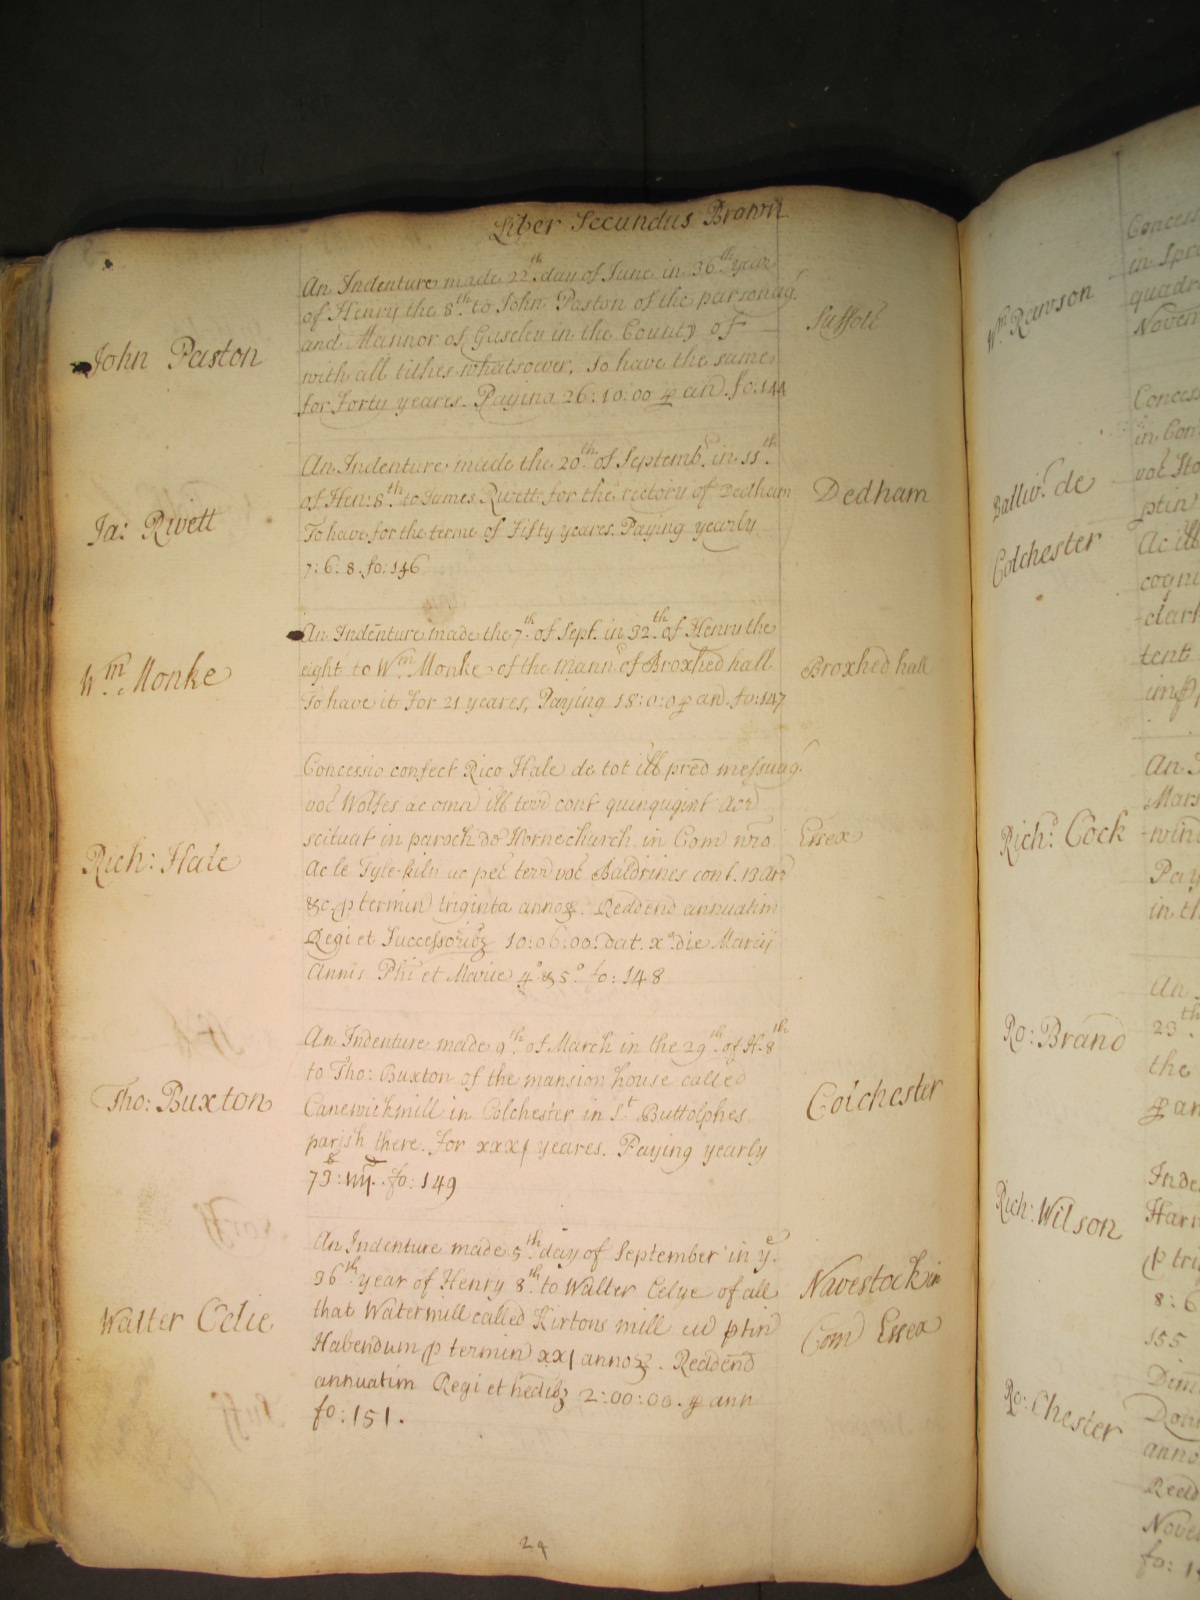 Liber Secundus Brown
John Paston
An Indenture made 22th day of June in 36th year
of Henry the 8th to John Paston of the parsonag.
and Mannor of Guselen in the County of
with all tithes whatsoever, to have the same
for Forty yeares. Paying 26:10:00 p an. fo:144
Suffolk
Ja: Rivett
An Indenture made the 20th of Septembr in 11th
of Hen: 8th to James Rivett for the rectory of Dedham
To have for the terme of Fifty yeares. Paying yearly
7:6:8. fo:146
Dedham
Wm Monke
An Indenture made the 7th of Sept. in 32th of Henry the
eight to Wm Monke of the Mannr of Broxhed hall
To have it for 21 yeares, Paying 18:0:0 p an. fo:147
Broxhed hall
Rich: Hale
Concessio confect Rico Hale de tot ill pred messuag.
voc Wolfes ac omn ill terr cont quinqugint acr
scituat in paroch de Hornechurch in Com nro
Ac le Tyle-kiln ac pec terr voc Baldrines cont. 13 acr
&c. p termin triginta annoz. Reddend annuatim
Regi et Successoribz 10:06:00. dat. xo die Marcij
Annis Phi et Mariæ 4o & 5o fo:148
Essex
Tho: Buxton
An Indenture made 9th of March in the 29th of H. 8th
to Tho: Buxton of the mansion house called
Canewickmill in Colchester in St Buttolphes
parish there. For xxxj yeares. Paying yearly
73s: iiijd. fo:149
Colchester
Walter Celie
An Indenture made 5th day of September in ye
36th year of Henry 8th to Walter Celye of all
that Watermill called Kirtons mill cu ptin
Habendum p termin xxj annoz. Reddend
annuatim Regi et hedibz 2:00:00. p ann
fo:151.
Navestock in
Com Essex
24
Wm Rawson
Conces
in Spr
quadr
Novem
Balliv. de
Colchester
Concess
in Com
voc Sto
ptin
Ac ill
cogni
clar
tent
imp
Richd Cock
An
Mars
win
Pay
in th
Ro: Brand
An
23th
the
p an
Rich: Wilson
Inde
Harr
p tri
8:6
155
Ro: Chester
Dim
Dom
anno
Redd
Nove
fo: 1